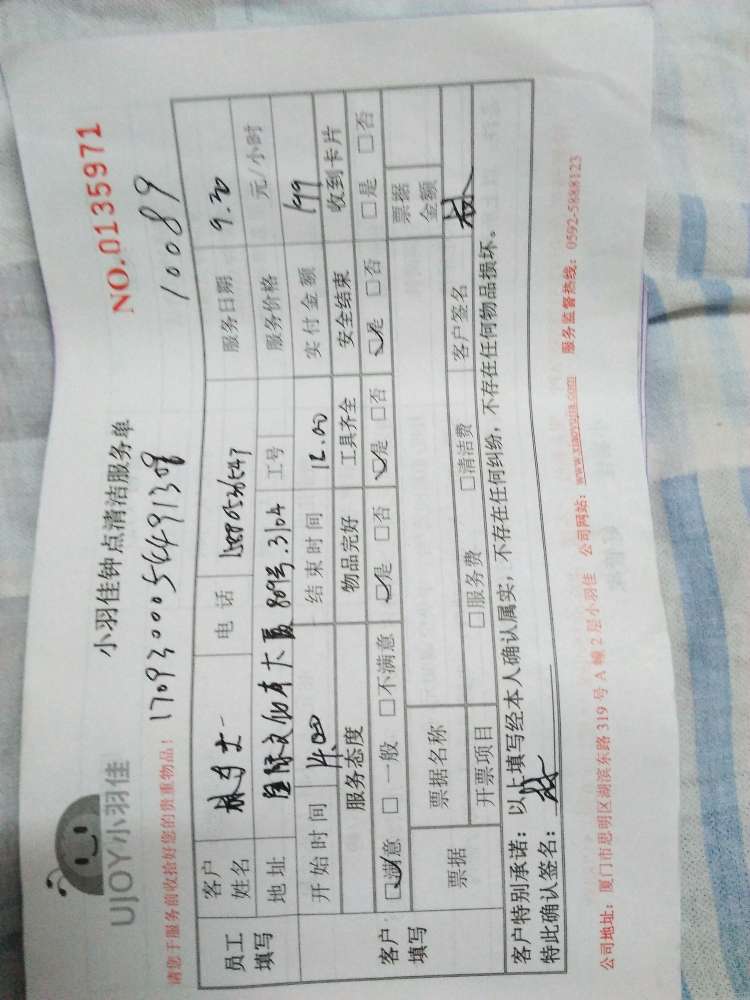 UJOY小羽佳
小羽佳钟点清洁服务单
NO.0135971
请您于服务前收拾好您的贵重物品!
1709300054491308
10089
员工填写
客户姓名 林女士 电话 服务日期 9.30
地址 809号.3104 工号 服务价格 元/小时
客户填写
开始时间 结束时间 12.00 实付金额 199
服务态度 物品完好 工具齐全 安全结束 收到卡片
☑满意 □一般 □不满意 ☑是 □否 ☑是 □否 ☑是 □否 □是 □否
票据 票据名称 票据金额
开票项目 □服务费 □清洁费 客户签名 林
客户特别承诺:以上填写经本人确认属实,不存在任何纠纷,不存在任何物品损坏。
特此确认签名: 林
公司地址:厦门市思明区湖滨东路319号A幢2层小羽佳 公司网站:www.xiaoyujia.com 服务监督热线:0592-5888123